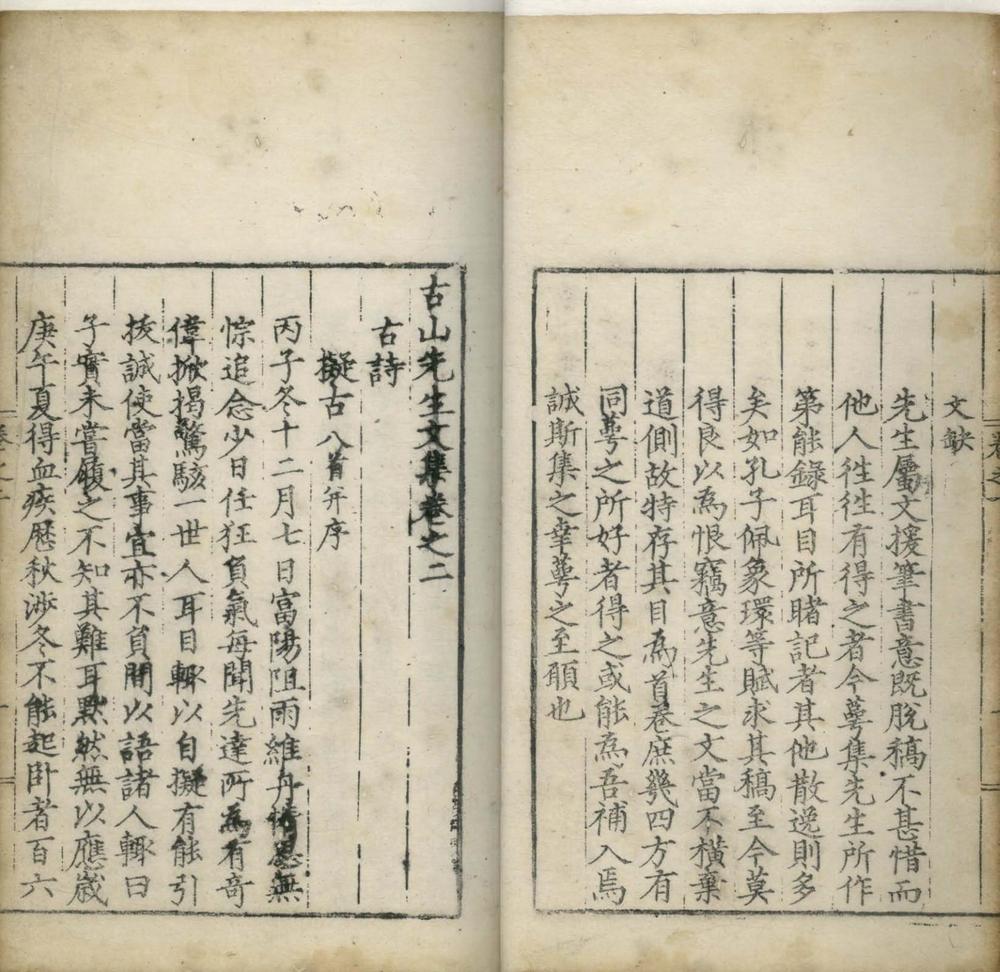 文缺
先生屬文援筆書意既脫稿不甚惜而
他人徃徃有得之者今蕚集先生所作
第能錄耳目所睹記者其他散逸則多
矣如孔子佩象環等賦求其稿至今莫
得良以為恨竊意先生之文當不橫棄
道側故特存其目為首卷庶幾四方有
同蕚之所好者得之或能為吾補入焉
誠斯集之幸蕚之至願也
古山先生文集卷之二
古詩
擬古八首并序
丙子冬十二月七日富陽阻雨維舟無
悰追念少日任狂負氣每聞先達所為有奇
偉掀揭驚駭一世人耳目輒以自擬有能引
拔誠使當其事宜亦不負間以語諸人輒曰
子實未嘗顧之不知其難耳默然無以應歲
庚午夏得血疾歷秋涉冬不能起卧者百六